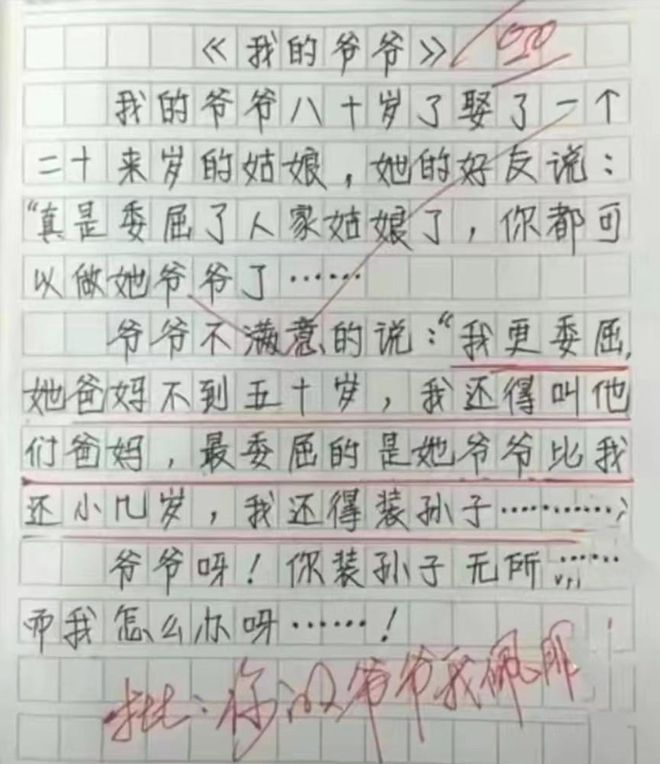 《我的爷爷》
我的爷爷八十岁了娶了一个
二十来岁的姑娘，她的好友说：
“真是委屈了人家姑娘了，你都可
以做她爷爷了……
爷爷不满意的说：“我更委屈，
她爸妈不到五十岁，我还得叫他
们爸妈，最委屈的是她爷爷比我
还小几岁，我还得装孙子…………，
爷爷呀！你装孙子无所……
而我怎么办呀……！
批：你的爷爷我佩服！